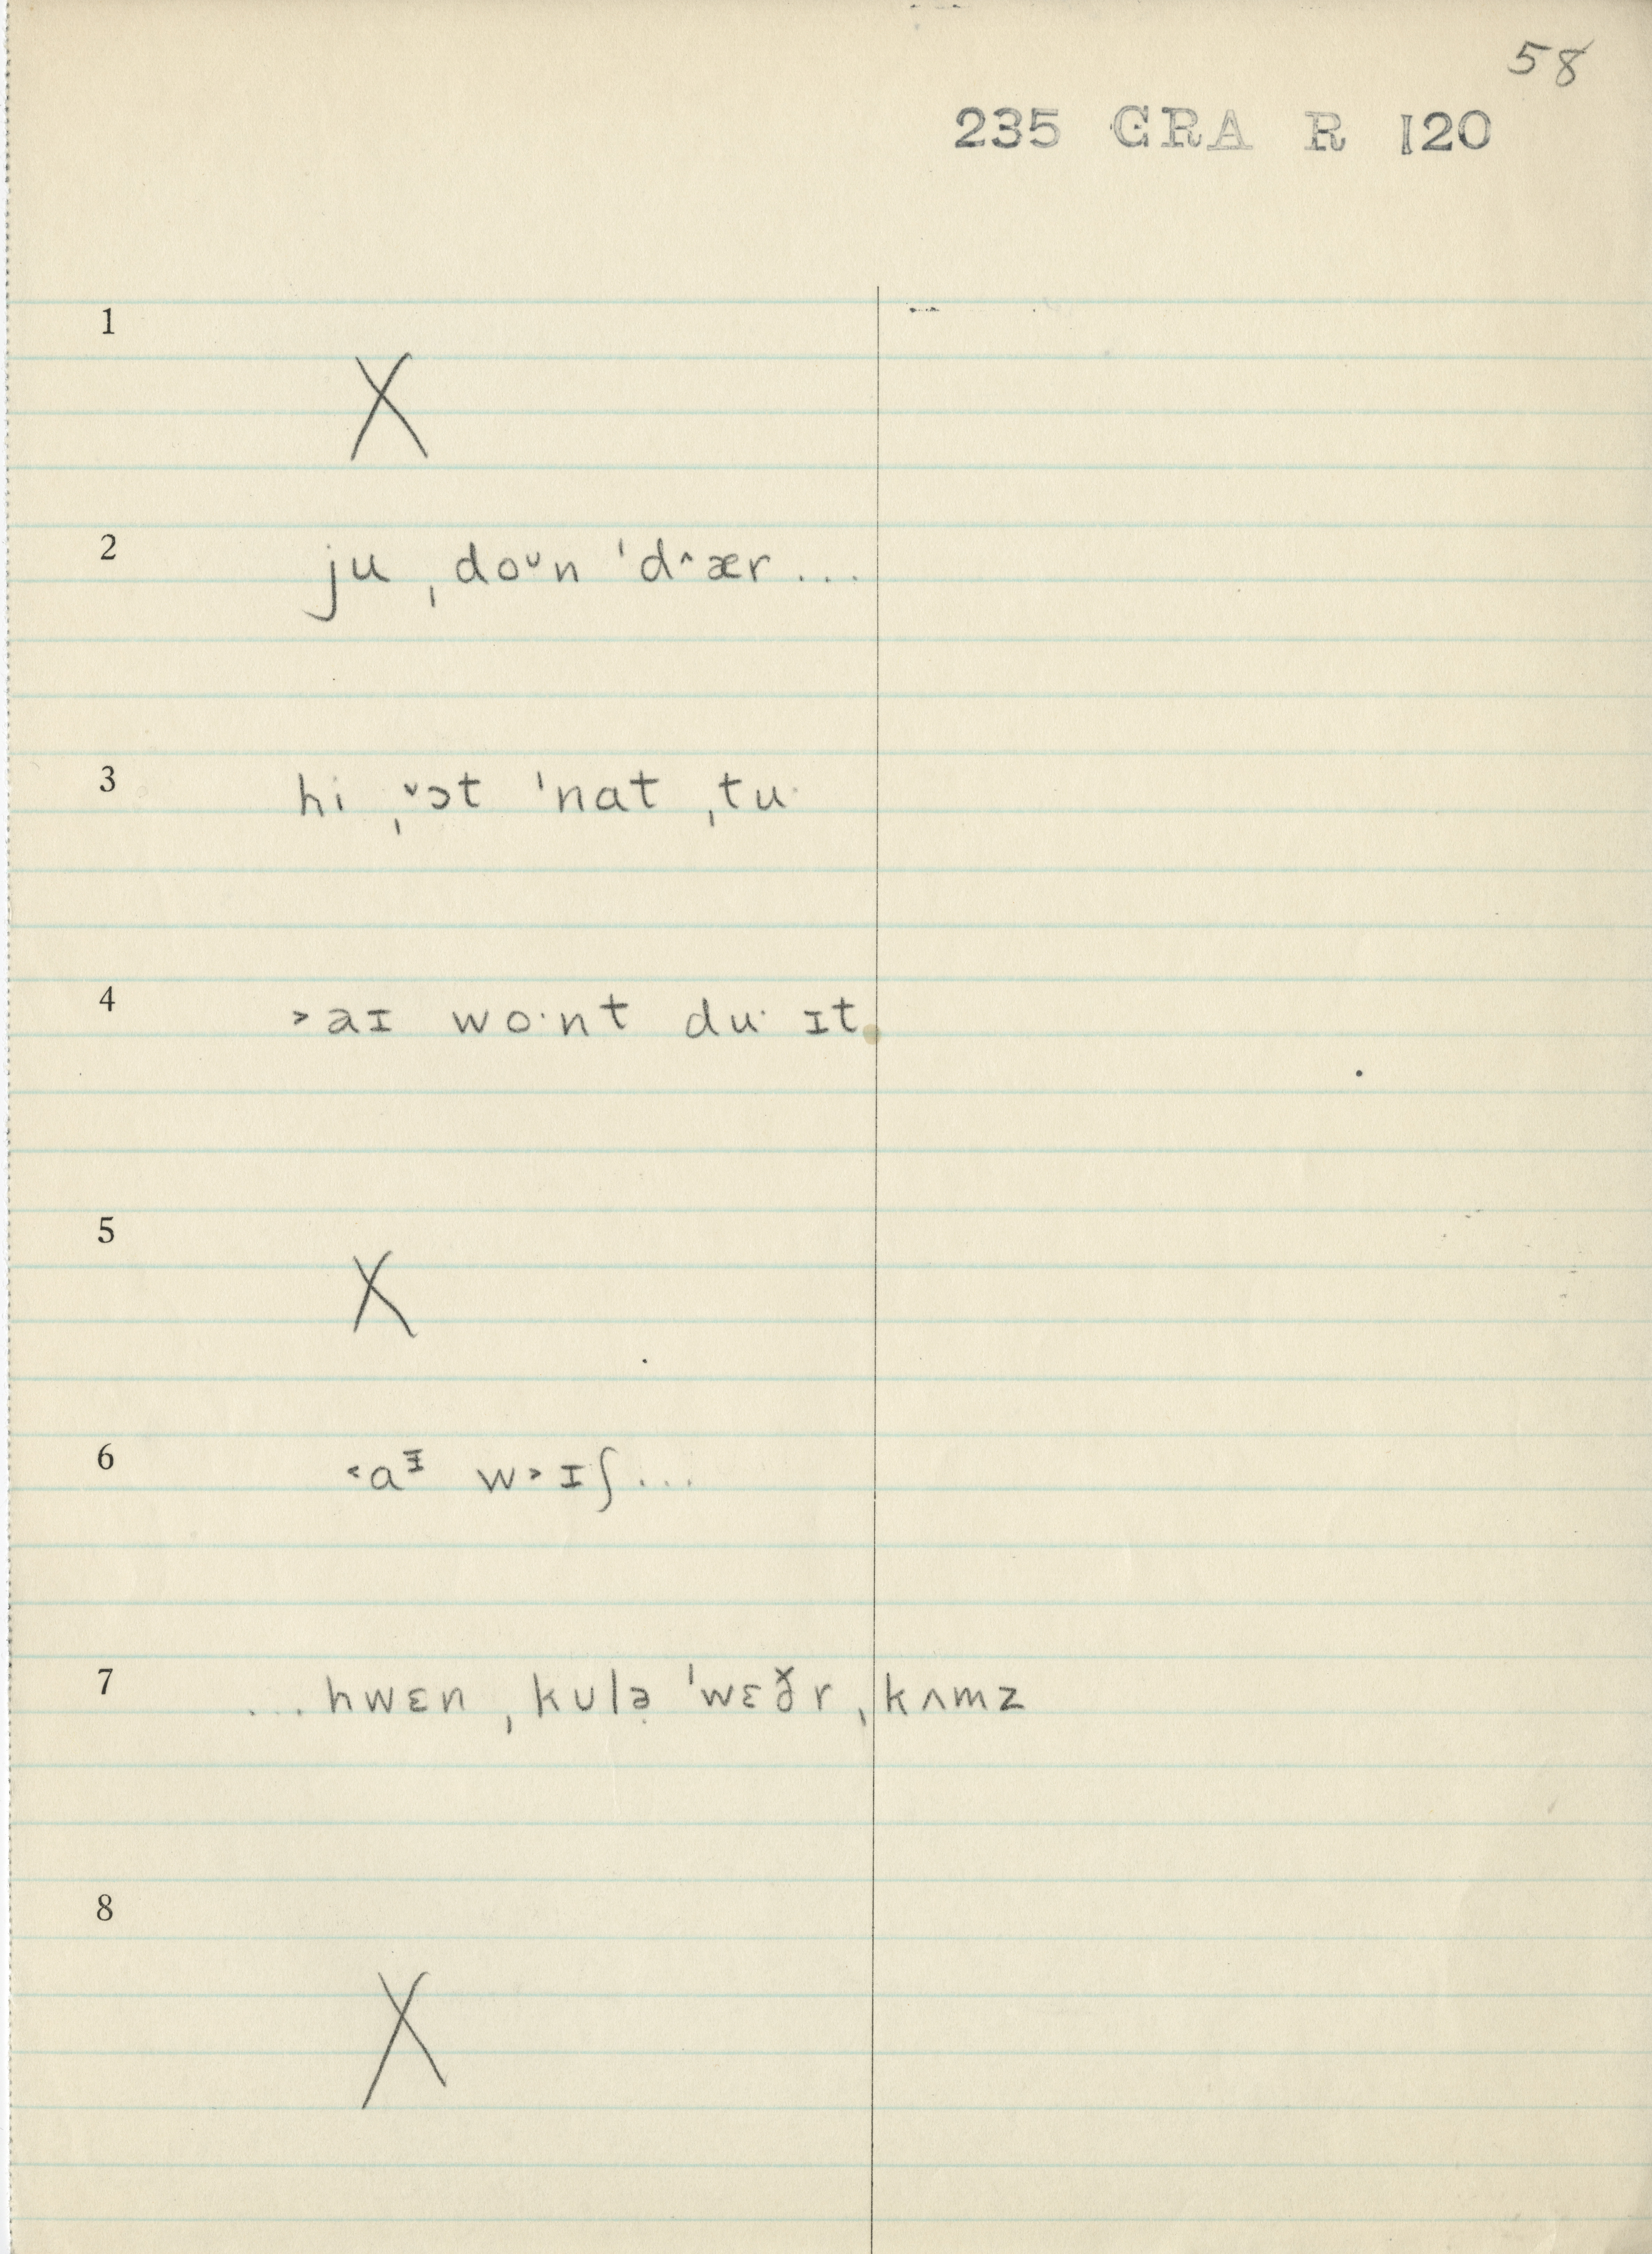 58
235 GRA R 120
1
X
2 ju ˌdoᴗn ˈd^ær...
3 hi ˌˇɔt ˈnat ˌtu·
4 >aɪ wo·nt du· ɪt
5
X
6 <aᵻ w>ɪʃ...
7 ...hwɛn ˌkʊlə̣ ˈwɛð̌r ˌkʌmz
8
X